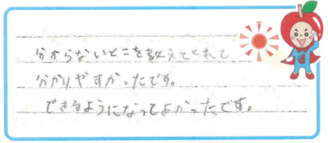 分からないとこを教えてくれて
分かりやすかったです。
できるようになってよかったです。